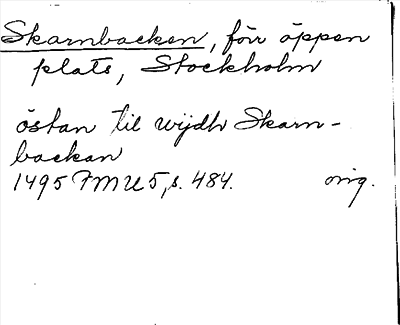 Skarnbacken, förr öppen
plats, Stockholm
östan til wijdh Skarn-
backan
1495 FMU 5, s. 484. orig.